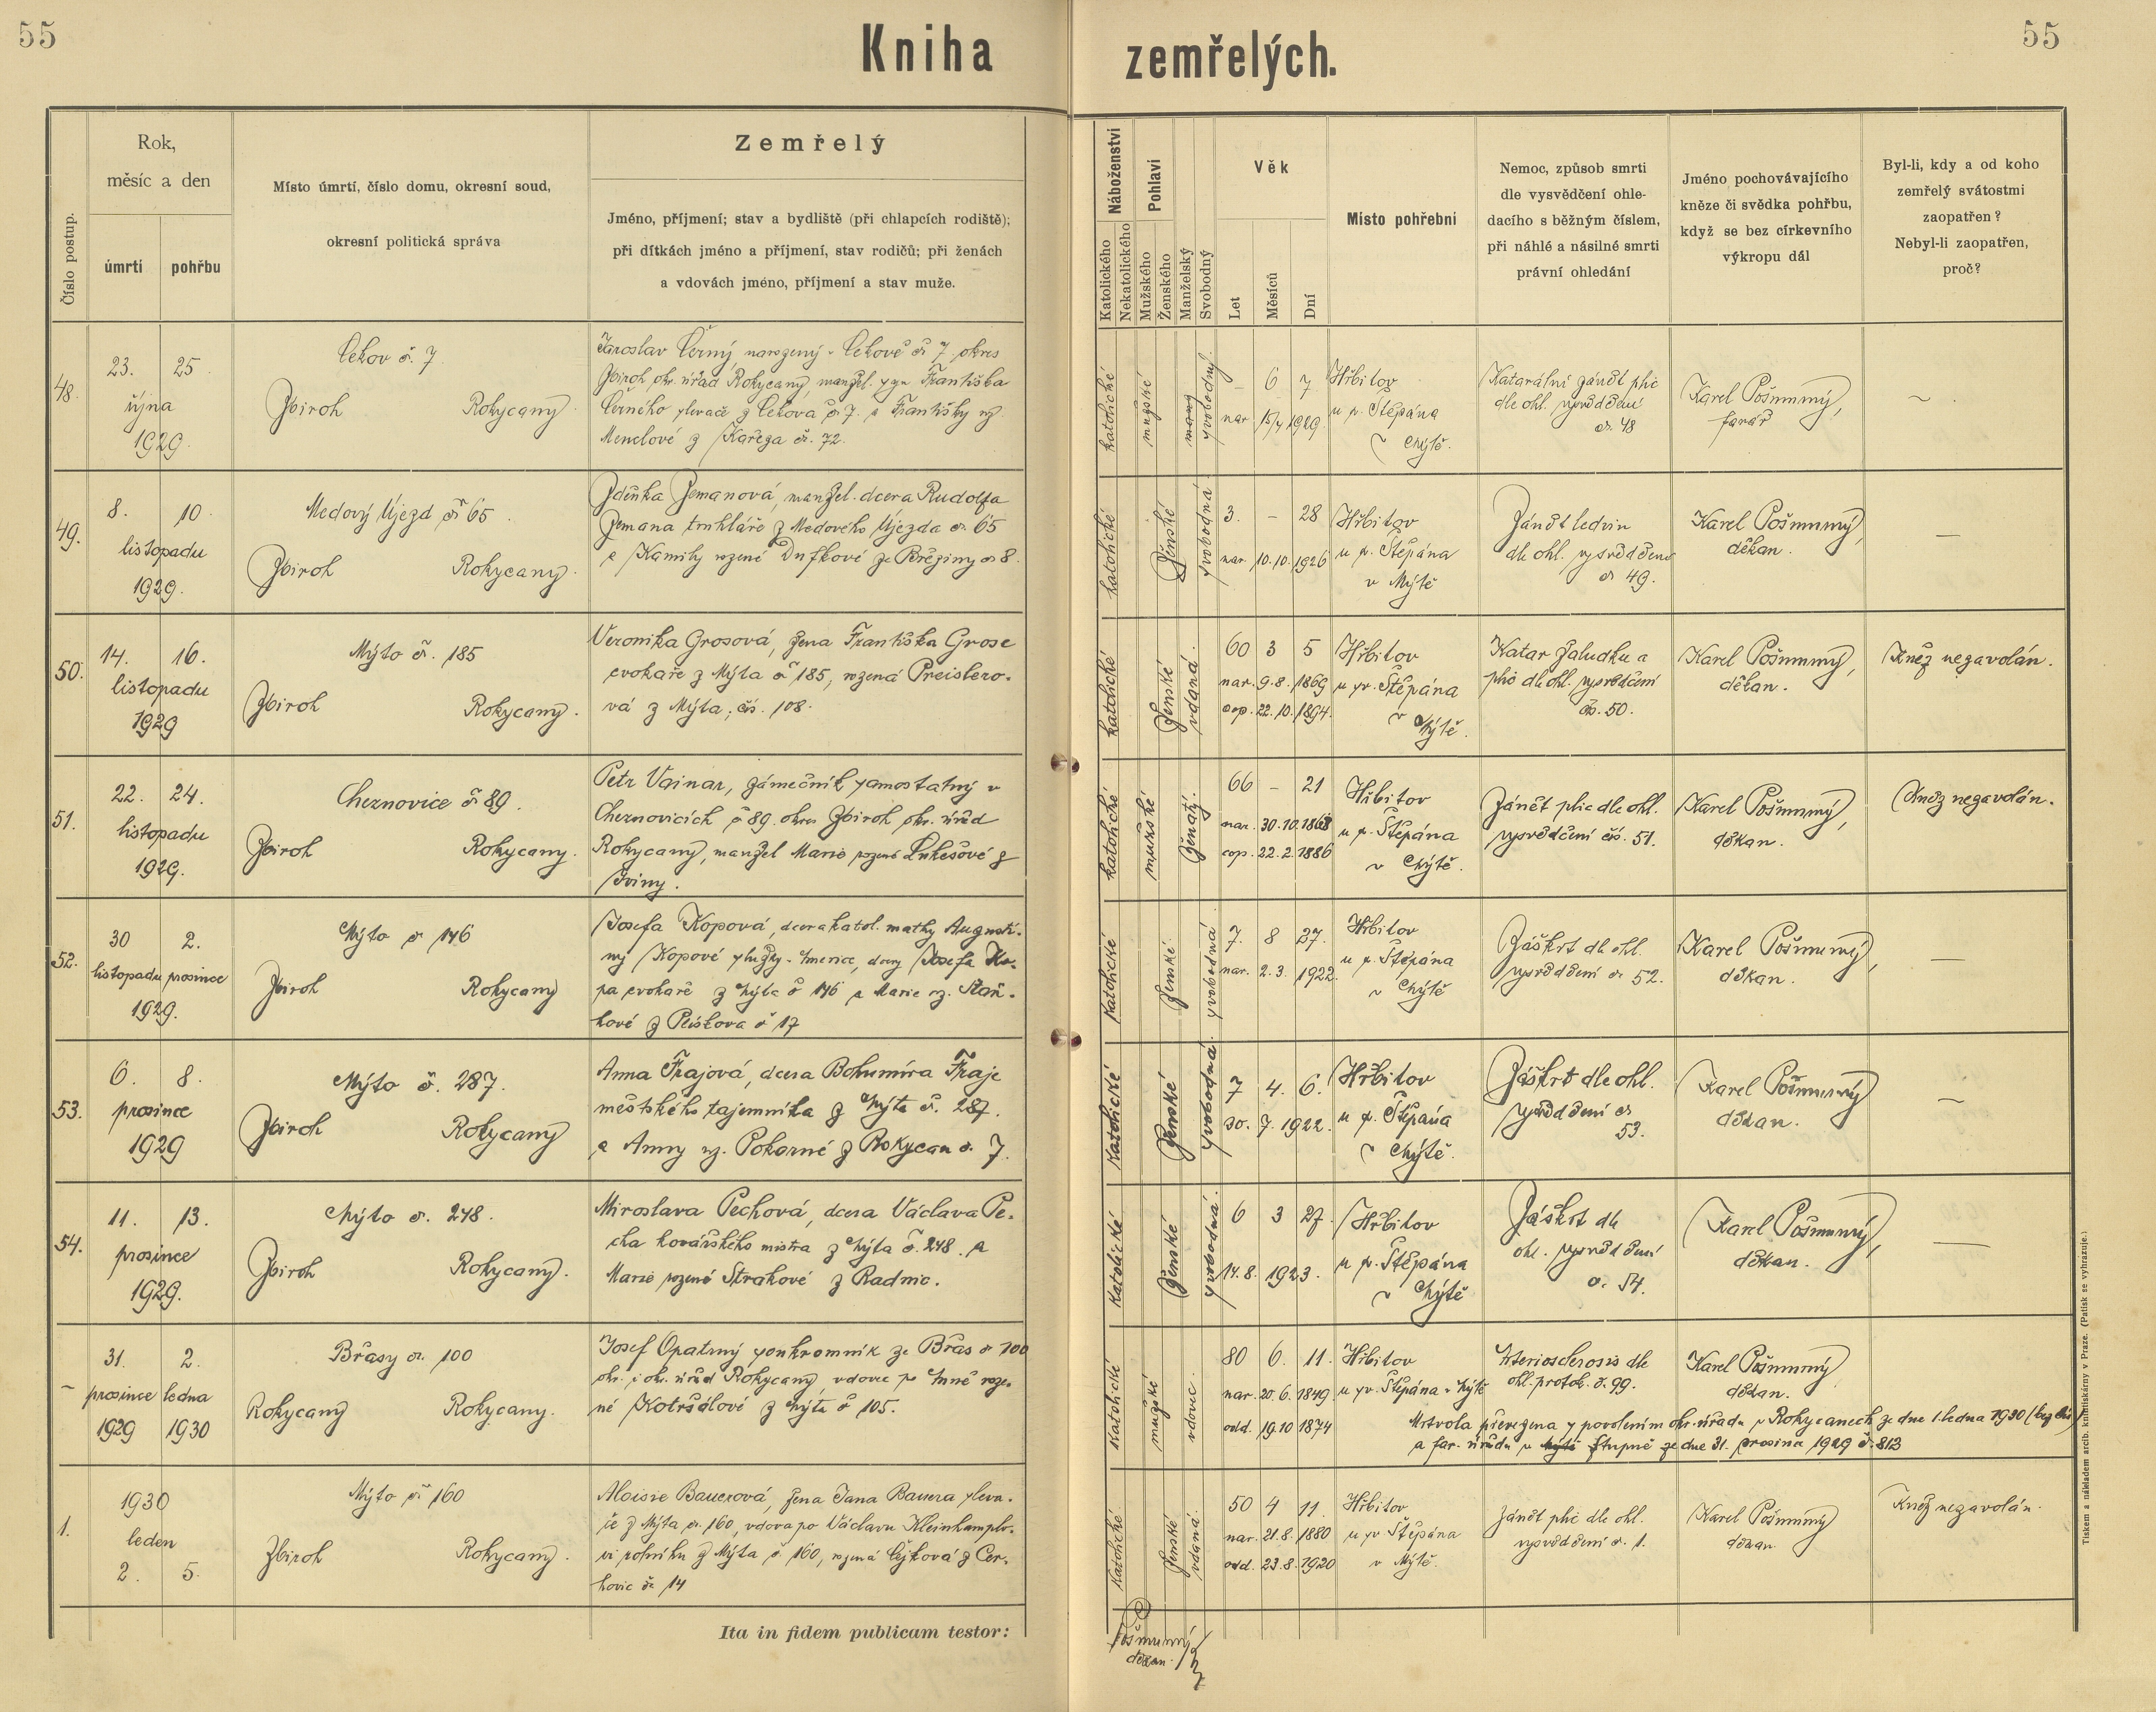 55
Kniha zemřelých.
55
Číslo postup.
Rok,
měsíc a den
úmrtí
pohřbu
Místo úmrtí, číslo domu, okresní soud,
okresní politická správa
Zemřelý
Jméno, příjmení; stav a bydliště (při chlapcích rodiště);
při dítkách jméno a příjmení, stav rodičů; při ženách
a vdovách jméno, příjmení a stav muže.
Náboženství
Katolického
Nekatolického
Pohlaví
Mužského
Ženského
Manželský
Svobodný
Věk
Let
Měsíců
Dní
Místo pohřební
Nemoc, způsob smrti
dle vysvědčení ohle-
dacího s běžným číslem,
při náhlé a násilné smrti
právní ohledání
Jméno pochovávajícího
kněze či svědka pohřbu,
když se bez církevního
výkropu dál
Byl-li, kdy a od koho
zemřelý svátostmi
zaopatřen?
Nebyl-li zaopatřen,
proč?
48.
23. 25.
října
1929.
Cekov č. 7
Zbiroh Rokycany
Jaroslav Černý, narozený v Cekově č. 7 okres
Zbiroh okr. úřad Rokycany, manžel. syn Františka
Černého slevače z Cekova č. 7. a Františky roz.
Menclové z Kařeza čís. 72.
katolické
mužské
svobodný.
– 6 7
nar. 15/4 1929.
Hřbitov
u sv. Štěpána
v Mýtě.
Katarální zánět plic
dle ohl. vysvědčení
čís. 48
Karel Pošmurný,
farář
–
49.
8. 10.
listopadu
1929.
Medový Újezd č. 65
Zbiroh Rokycany.
Zdeňka Zemanová, manžel. dcera Rudolfa
Zemana truhláře z Medového Újezda čís 65
a Kamily rozené Dufkové ze Březiny čís 8.
katolické
ženské
svobodná
3. – 28
nar. 10. 10. 1926
Hřbitov
u sv. Štěpána
v Mýtě
Zánět ledvin
dle ohl. vysvědčení
čís 49.
Karel Pošmurný,
děkan.
–
50.
14. 16.
listopadu
1929
Mýto čís. 185
Zbiroh Rokycany.
Veronika Grosová, žena Františka Grose
cvokaře z Mýta č 185, rozená Preislero-
vá z Mýta, čís. 108.
katolické
ženské
vdaná.
60 3 5
nar. 9. 8. 1869
cop. 22. 10. 1894.
Hřbitov
u sv. Štěpána
v Mýtě.
Katar žaludku a
plic dle ohl. vysvědčení
čís. 50.
Karel Pošmurný,
děkan.
Kněz nezavolán.
51.
22. 24.
listopadu
1929.
Cheznovice č 89.
Zbiroh Rokycany.
Petr Vainar, zámečník samostatný v
Cheznovicích č 89. okres Zbiroh okr. úřad
Rokycany, manžel Marie rozené Lukešové z
Sviny.
katolické
mužské
ženatý.
66 – 21
nar. 30. 10. 1863
cop. 22. 2. 1886
Hřbitov
u sv. Štěpána
v Mýtě.
Zánět plic dle ohl.
vysvědčení čís. 51.
Karel Pošmurný,
děkan.
Kněz nezavolán.
52.
30 2.
listopadu prosince
1929.
Mýto čís 146
Zbiroh Rokycany
Josefa Kopová, dcera katol. matky Augusti-
ny Kopové služky v Americe, dcery Josefa Ko-
pa cvokaře z Mýta č 146 a Marie roz. Staň-
kové z Plískova č 17
katolické
ženské
svobodná.
7. 8 27.
nar. 2. 3. 1922.
Hřbitov
u sv. Štěpána
v Mýtě
Záškrt dle ohl.
vysvědčení čís 52.
Karel Pošmurný,
děkan.
–
53.
6. 8.
prosince
1929
Mýto č. 287.
Zbiroh Rokycany
Anna Frajová, dcera Bohumíra Fraje
městského tajemníka z Mýta č. 287.
a Anny roz. Pokorné z Rokycan č. 7.
katolické
ženské
svobodná.
7 4. 6.
30. 7. 1922.
Hřbitov
u sv. Štěpána
v Mýtě.
Záškrt dle ohl.
vysvědčení čís
53.
Karel Pošmurný
děkan.
–
54.
11. 13.
prosince
1929.
Mýto čís. 248.
Zbiroh Rokycany.
Miroslava Pechová, dcera Václava Pe-
cha kovářského mistra z Mýta č. 248. a
Marie rozené Strakové z Radnic.
katolické
ženské
svobodná.
6 3 27.
14. 8. 1923.
Hřbitov
u sv. Štěpána
v Mýtě
Záškrt dle
ohl. vysvědčení
č. 54.
Karel Pošmurný,
děkan.
–
–
31. 2.
prosince ledna
1929 1930
Břasy čís. 100
Rokycany Rokycany.
Josef Opatrný soukromník ze Břas č 100
okr. i okr. úřad Rokycany, vdovec po Anně roze-
né Kotršálové z Mýta č 105.
katolické
mužské
vdovec.
80 6. 11.
nar. 20. 6. 1849.
odd. 19. 10 1874
Hřbitov
u sv. Štěpána v Mýtě
Arteriosclerosis dle
ohl. protok. č. 99.
Karel Pošmurný
děkan.
Mrtvola převezena s povolením okr. úřadu v Rokycanech ze dne 1. ledna 1930 (bez čís)
a far. úřadu v Mýtě Stupně ze dne 31. prosince 1929 č. 813
1.
1930
leden
2. 5.
Mýto čís 160
Zbiroh Rokycany.
Aloisie Bauerová, žena Jana Bauera sleva-
če z Mýta čís. 160, vdova po Václavu Kleinhamplo-
vi rolníku z Mýta č. 160, rozená Cejková z Cer-
hovic čís 14
katolické
ženské
vdaná.
50 4 11.
nar. 21. 8. 1880
odd. 23. 8. 1920
Hřbitov
u sv Štěpána
v Mýtě.
Zánět plic dle ohl.
vysvědčení č. 1.
Karel Pošmurný
děkan
Kněz nezavolán.
Ita in fidem publicam testor:
Pošmurný
děkan.
Tiskem a nákladem arcib. knihtiskárny v Praze. (Patisk se vyhrazuje.)